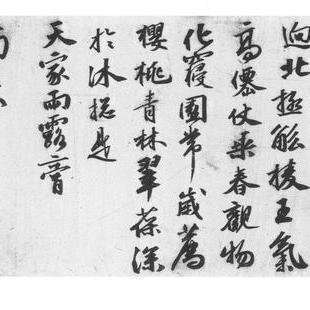 逈北極觚棱王氣
高僊仗乘春觀物
化寢園常歲薦
櫻桃青林翠葆深
於沐揔是
天家雨露膏